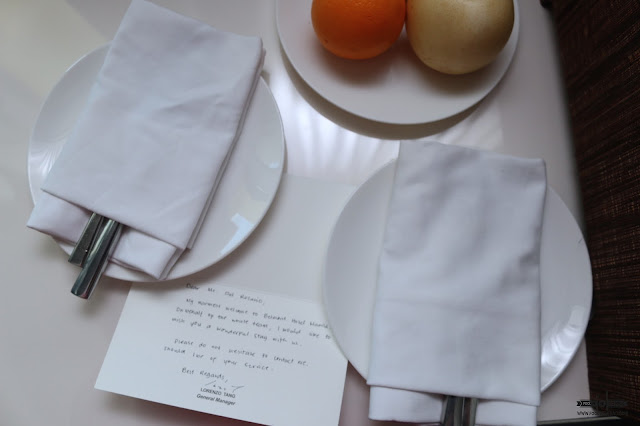 Dear Mr.
My warmest welcome to Hotel
On behalf of the whole team, I would like to
wish you a wonderful stay with us.
Please do not hesitate to contact me
should I be of your service.
Best Regards,
LORENZO TANG
General Manager